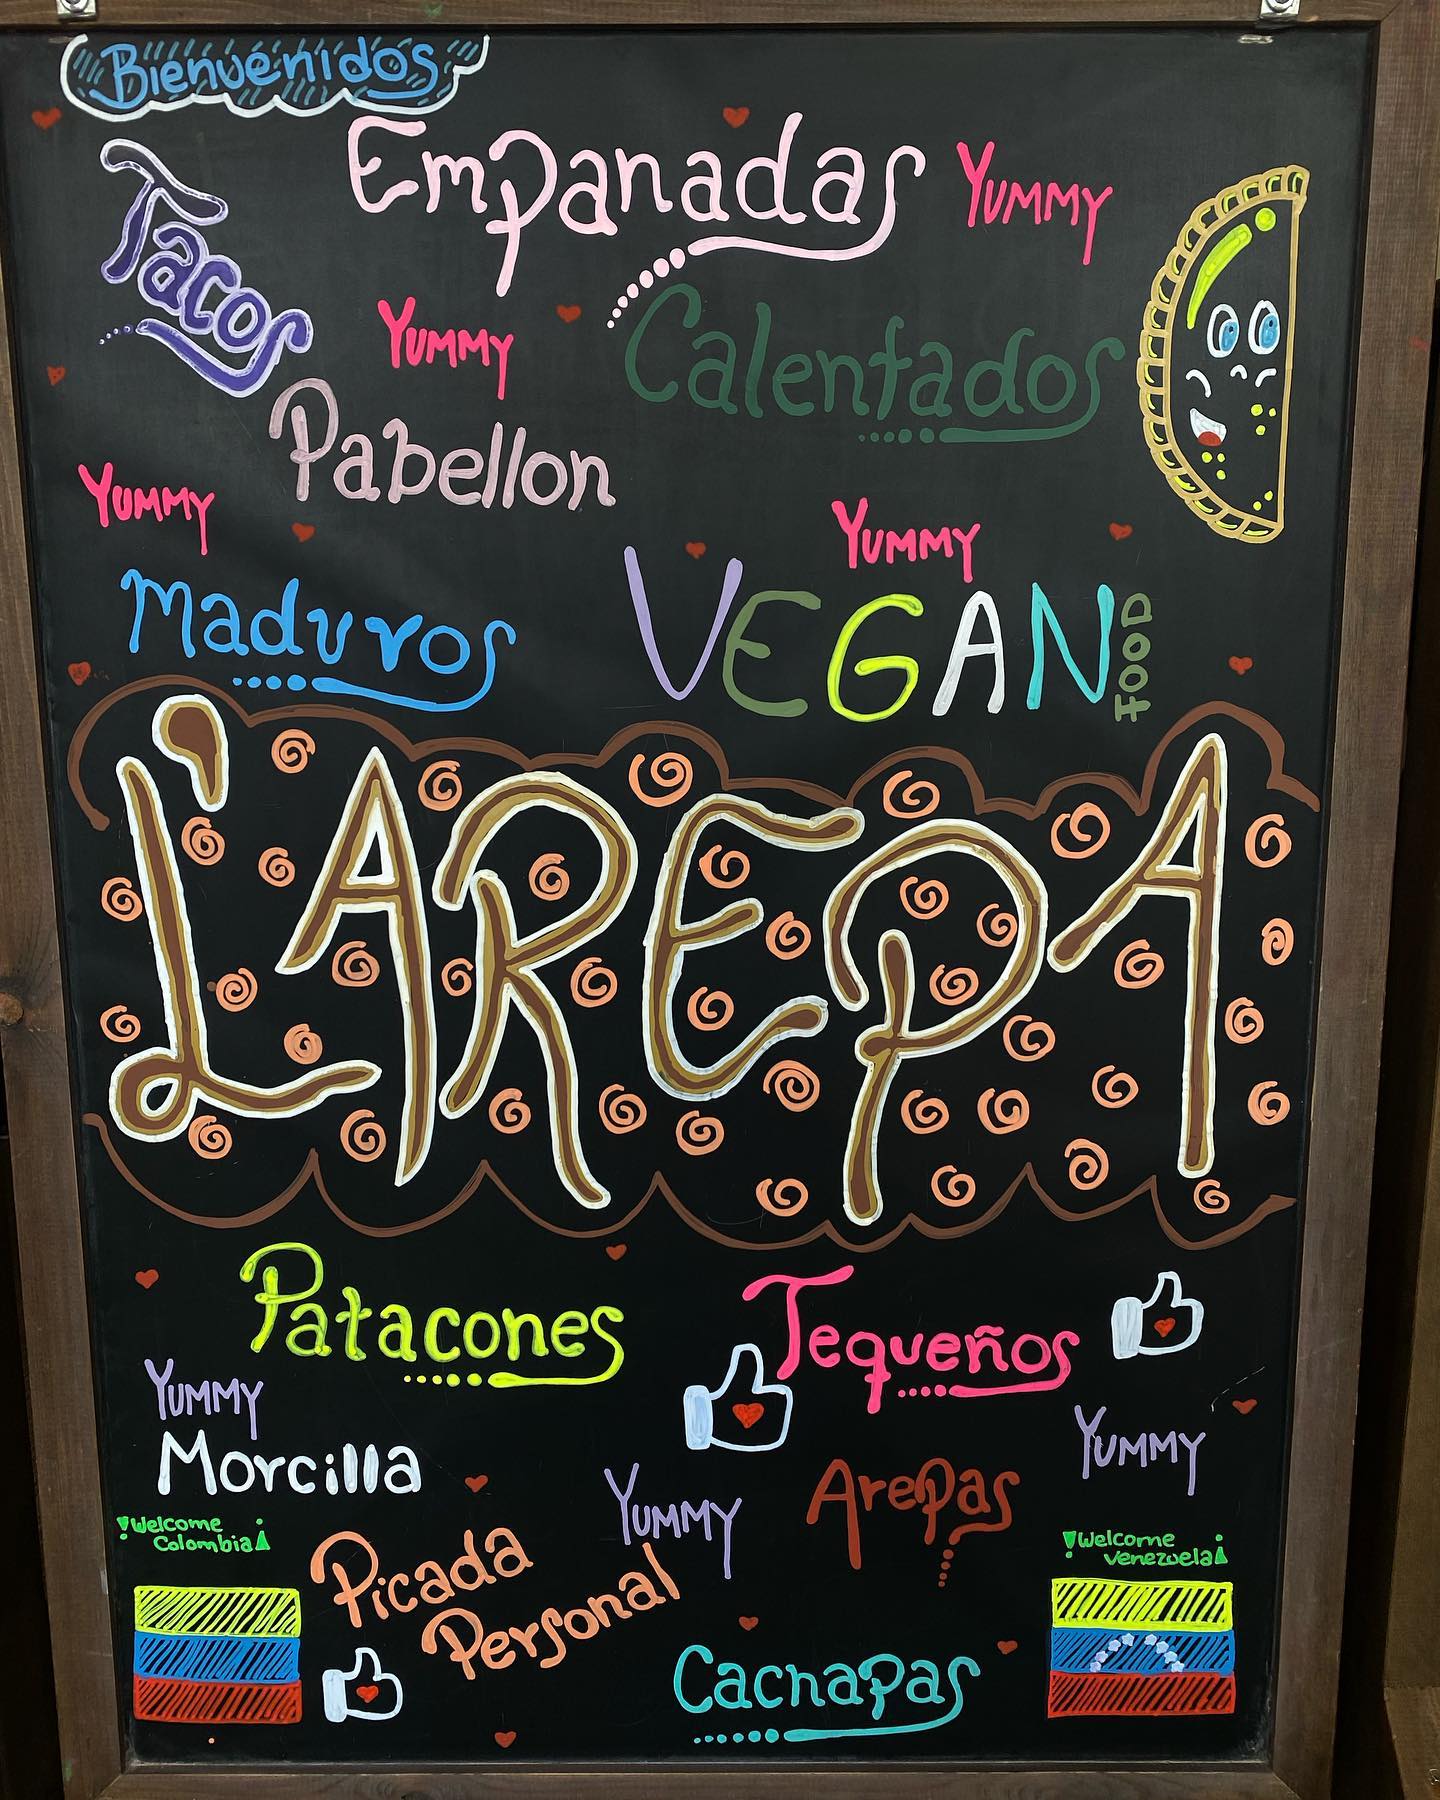 Bienvenidos
Empanadas
YUMMY
Tacos
YUMMY
Calentados
Pabellon
YUMMY
YUMMY
Maduros
VEGAN
FOOD
L'AREPA
Patacones
Tequeños
YUMMY
YUMMY
Morcilla
YUMMY
Arepas
!Welcome
Colombia!
Picada
Personal
!Welcome
Venezuela!
Cachapas